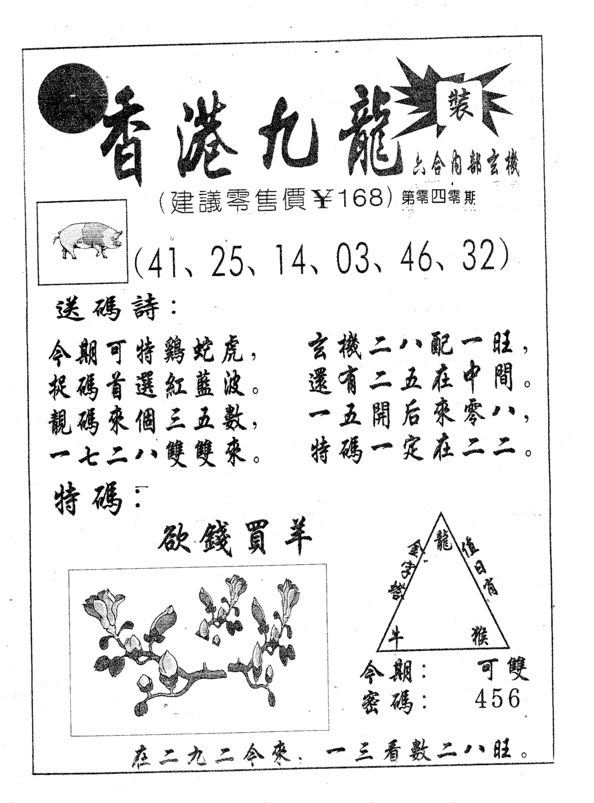 香港九龍
裝
六合內部玄機
(建議零售價¥168)第零四零期
(41、25、14、03、46、32)
送碼詩：
今期可特鷄蛇虎，
捉碼首選紅藍波。
靚碼來個三五數，
一七二八雙雙來。
玄機二八配一旺，
還有二五在中間。
一五開后來零八，
特碼一定在二二。
特碼：
欲錢買羊
龍
金字塔
值日肖
牛
猴
今期：可雙
密碼：456
在二九二今來．一三看數二八旺。